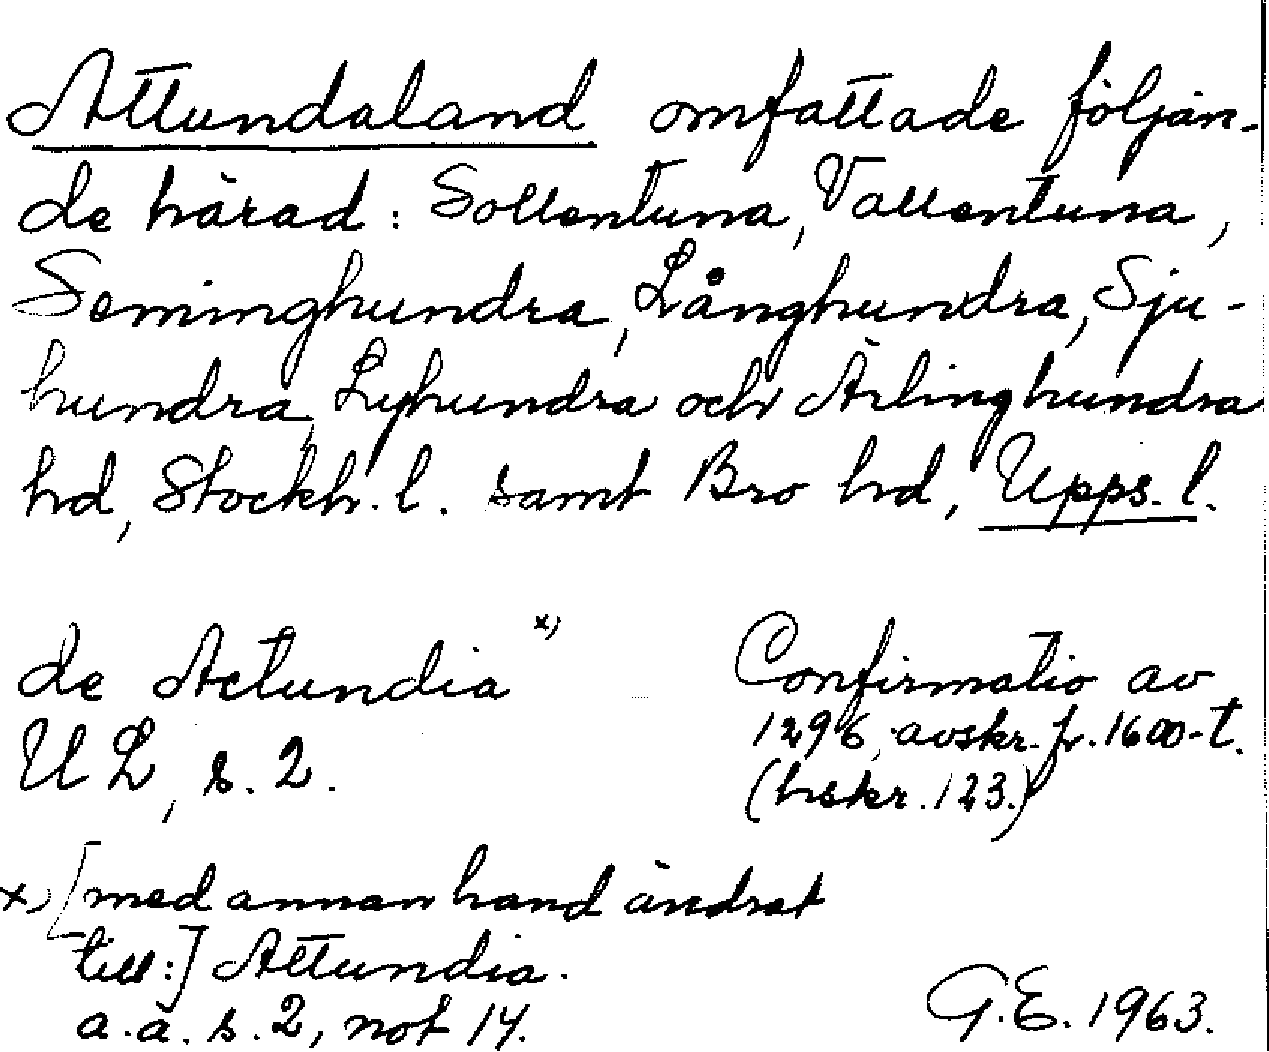 Attundaland omfattade följan-
de härad: Sollentuna, Vallentuna,
Seminghundra, Långhundra, Sju-
hundra, Lyhundra och Ärlinghundra
hd, Stockh. l. samt Bro hd, Upps. l.
de Actundia x) Confirmatio av
UL, s. 2. 1296, avskr. fr. 1600-t.
(hskr. 123.)
x) [med annan hand ändrat
till:] Attundia.
a.a. s. 2, not 14.
G.E. 1963.